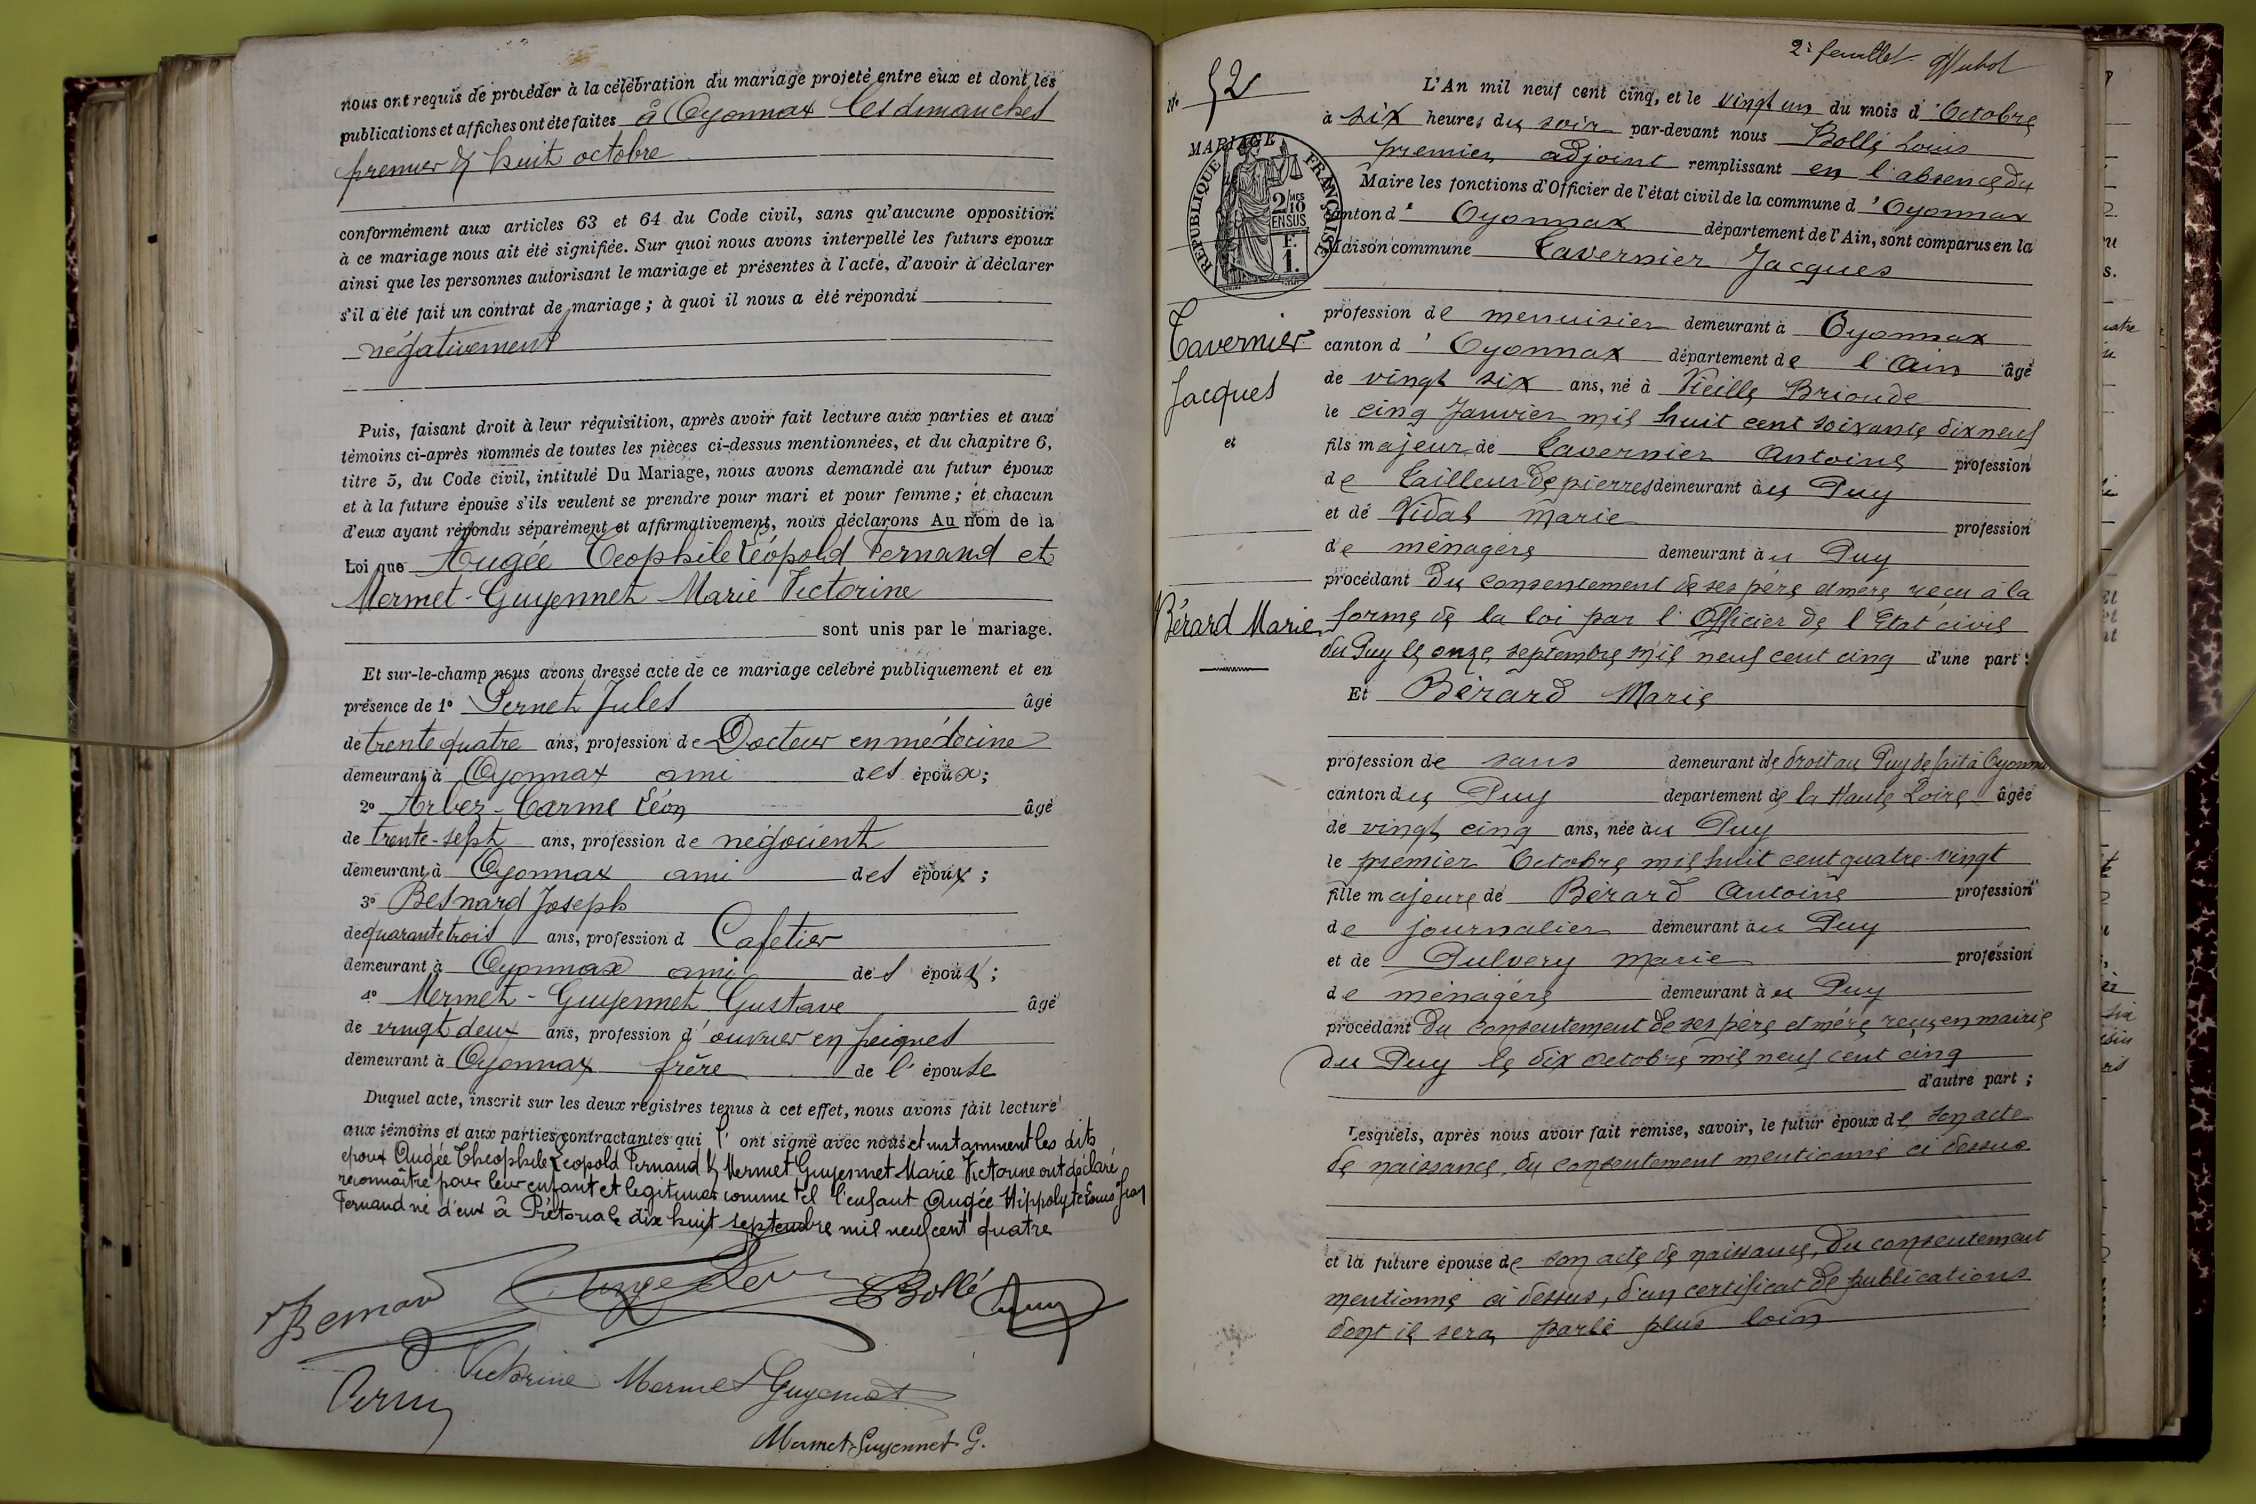 nous ont requis de procéder à la célébration du mariage projeté entre eux et dont les
publications et affiches ont été faites à Oyonnax les dimanches
premier & huit octobre
conformément aux articles 63 et 64 du Code civil, sans qu'aucune opposition
à ce mariage nous ait été signifiée. Sur quoi nous avons interpellé les futurs époux
ainsi que les personnes autorisant le mariage et présentes à l'acte, d'avoir à déclarer
s'il a été fait un contrat de mariage ; à quoi il nous a été répondu
négativement
Puis, faisant droit à leur réquisition, après avoir fait lecture aux parties et aux
témoins ci-après nommés de toutes les pièces ci-dessus mentionnées, et du chapitre 6,
titre 5, du Code civil, intitulé Du Mariage, nous avons demandé au futur époux
et à la future épouse s'ils veulent se prendre pour mari et pour femme ; et chacun
d'eux ayant répondu séparément et affirmativement, nous déclarons Au nom de la
Loi que Augée Téophile Léopold Fernand et
Mermet-Guyennet Marie Victorine
sont unis par le mariage.
Et sur-le-champ nous avons dressé acte de ce mariage célébré publiquement et en
présence de 1° Pernet Jules âgé
de trente quatre ans, profession de Docteur en médecine
demeurant à Oyonnax ami des époux ;
2° Arbez-Carme Léon âgé
de trente-sept ans, profession de négocient
demeurant à Oyonnax ami des époux ;
3° Besnard Joseph
de quarante trois ans, profession d Cafetier
demeurant à Oyonnax ami des époux ;
4° Mermet-Guyennet Gustave âgé
de vingt deux ans, profession d'ouvrier en peignes
demeurant à Oyonnax frère de l'épouse
Duquel acte, inscrit sur les deux registres tenus à cet effet, nous avons fait lecture
aux témoins et aux parties contractantes qui l'ont signé avec nous et instamment les dits
époux Augée Théophile Léopold Fernand & Mermet Guyennet Marie Victorine ont déclaré
reconnaître pour leur enfant et légitimer comme tel l'enfant Augée Hippolyte Louis Jean
Fernand né d'eux à Prétoria le dix huit septembre mil neuf cent quatre
Besnard
Bollé
Victorine Mermet Guyennet
Mermet-Guyennet G.
2e feuillet
N° 52
MARIAGE
RÉPUBLIQUE FRANÇAISE
2/10 MES
EN SUS
F.
1.
Tavernier
Jacques
et
Bérard Marie
L'An mil neuf cent cinq, et le vingt un du mois d'Octobre
à six heures du soir par-devant nous Bollé Louis
premier adjoint remplissant en l'absence du
Maire les fonctions d'Officier de l'état civil de la commune d'Oyonnax
canton d' Oyonnax département de l'Ain, sont comparus en la
Maison commune Tavernier Jacques
profession de menuisier demeurant à Oyonnax
canton d'Oyonnax département de l'Ain âgé
de vingt six ans, né à Vieille Brioude
le cinq Janvier mil huit cent soixante dix neuf
fils majeur de Tavernier Antoine profession
de tailleur de pierres demeurant au Puy
et de Vidal Marie profession
de ménagère demeurant au Puy
procédant du consentement de ses père et mère reçu à la
forme de la loi par l'Officier de l'Etat civil
du Puy le onze septembre mil neuf cent cinq d'une part :
Et Bérard Marie
profession de sans demeurant de droit au Puy de fait à Oyonnax
canton du Puy département de la Haute Loire âgée
de vingt cinq ans, née au Puy
le premier Octobre mil huit cent quatre-vingt
fille majeure de Bérard Antoine profession
de journalier demeurant au Puy
et de Pulvery Marie profession
de ménagère demeurant au Puy
procédant du consentement de ses père et mère reçu en mairie
du Puy le dix octobre mil neuf cent cinq
d'autre part ;
Lesquels, après nous avoir fait remise, savoir, le futur époux de son acte
de naissance, du consentement mentionné ci dessus
et la future épouse de son acte de naissance, du consentement
mentionné ci dessus, d'un certificat de publications
dont il sera parlé plus loin